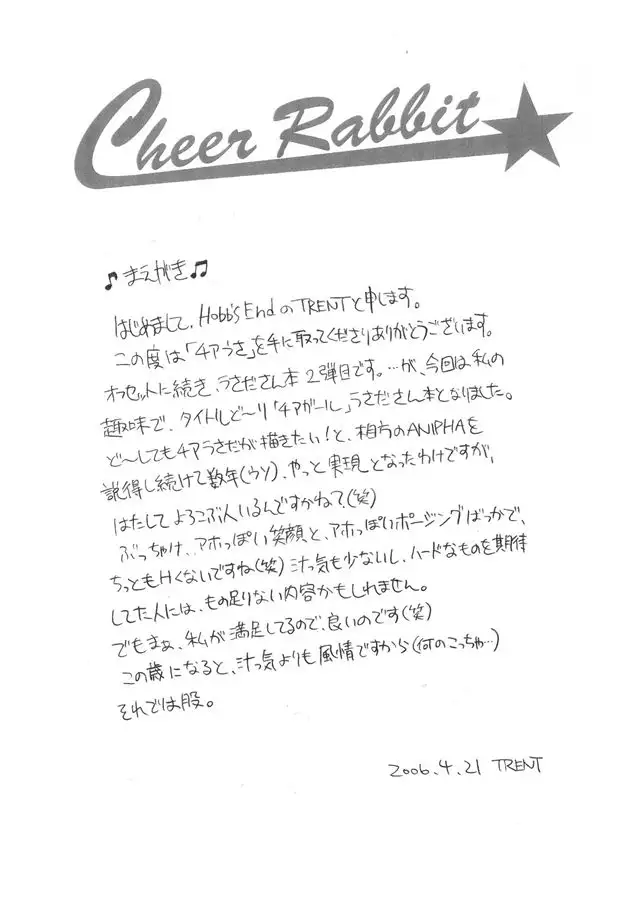 Cheer Rabbit
♪まえがき♫
はじめまして、Hobb's EndのTRENTと申します。
この度は「チアうさ」を手に取ってくださりありがとうございます。
オフセットに続き、うさださん本2弾目です。…が、今回は私の
趣味で、タイトルど〜り「チアガール」うさださん本となりました。
ど〜してもチアうさだが描きたい!と、相方のANIPHAを
説得し続けて数年(ウソ)、やっと実現となったわけですが、
はたしてよろこぶ人いるんですかねえ?(笑)
ぶっちゃけ、アホっぽい笑顔と、アホっぽいポージングばっかで、
ちっともHくないですね(笑)汁っ気も少ないし、ハードなものを期待
してた人には、もの足りない内容かもしれません。
でもまぁ、私が満足してるので、良いのです(笑)
この歳になると、汁っ気よりも風情ですから(何のこっちゃ…)
それでは股。
2006.4.21 TRENT